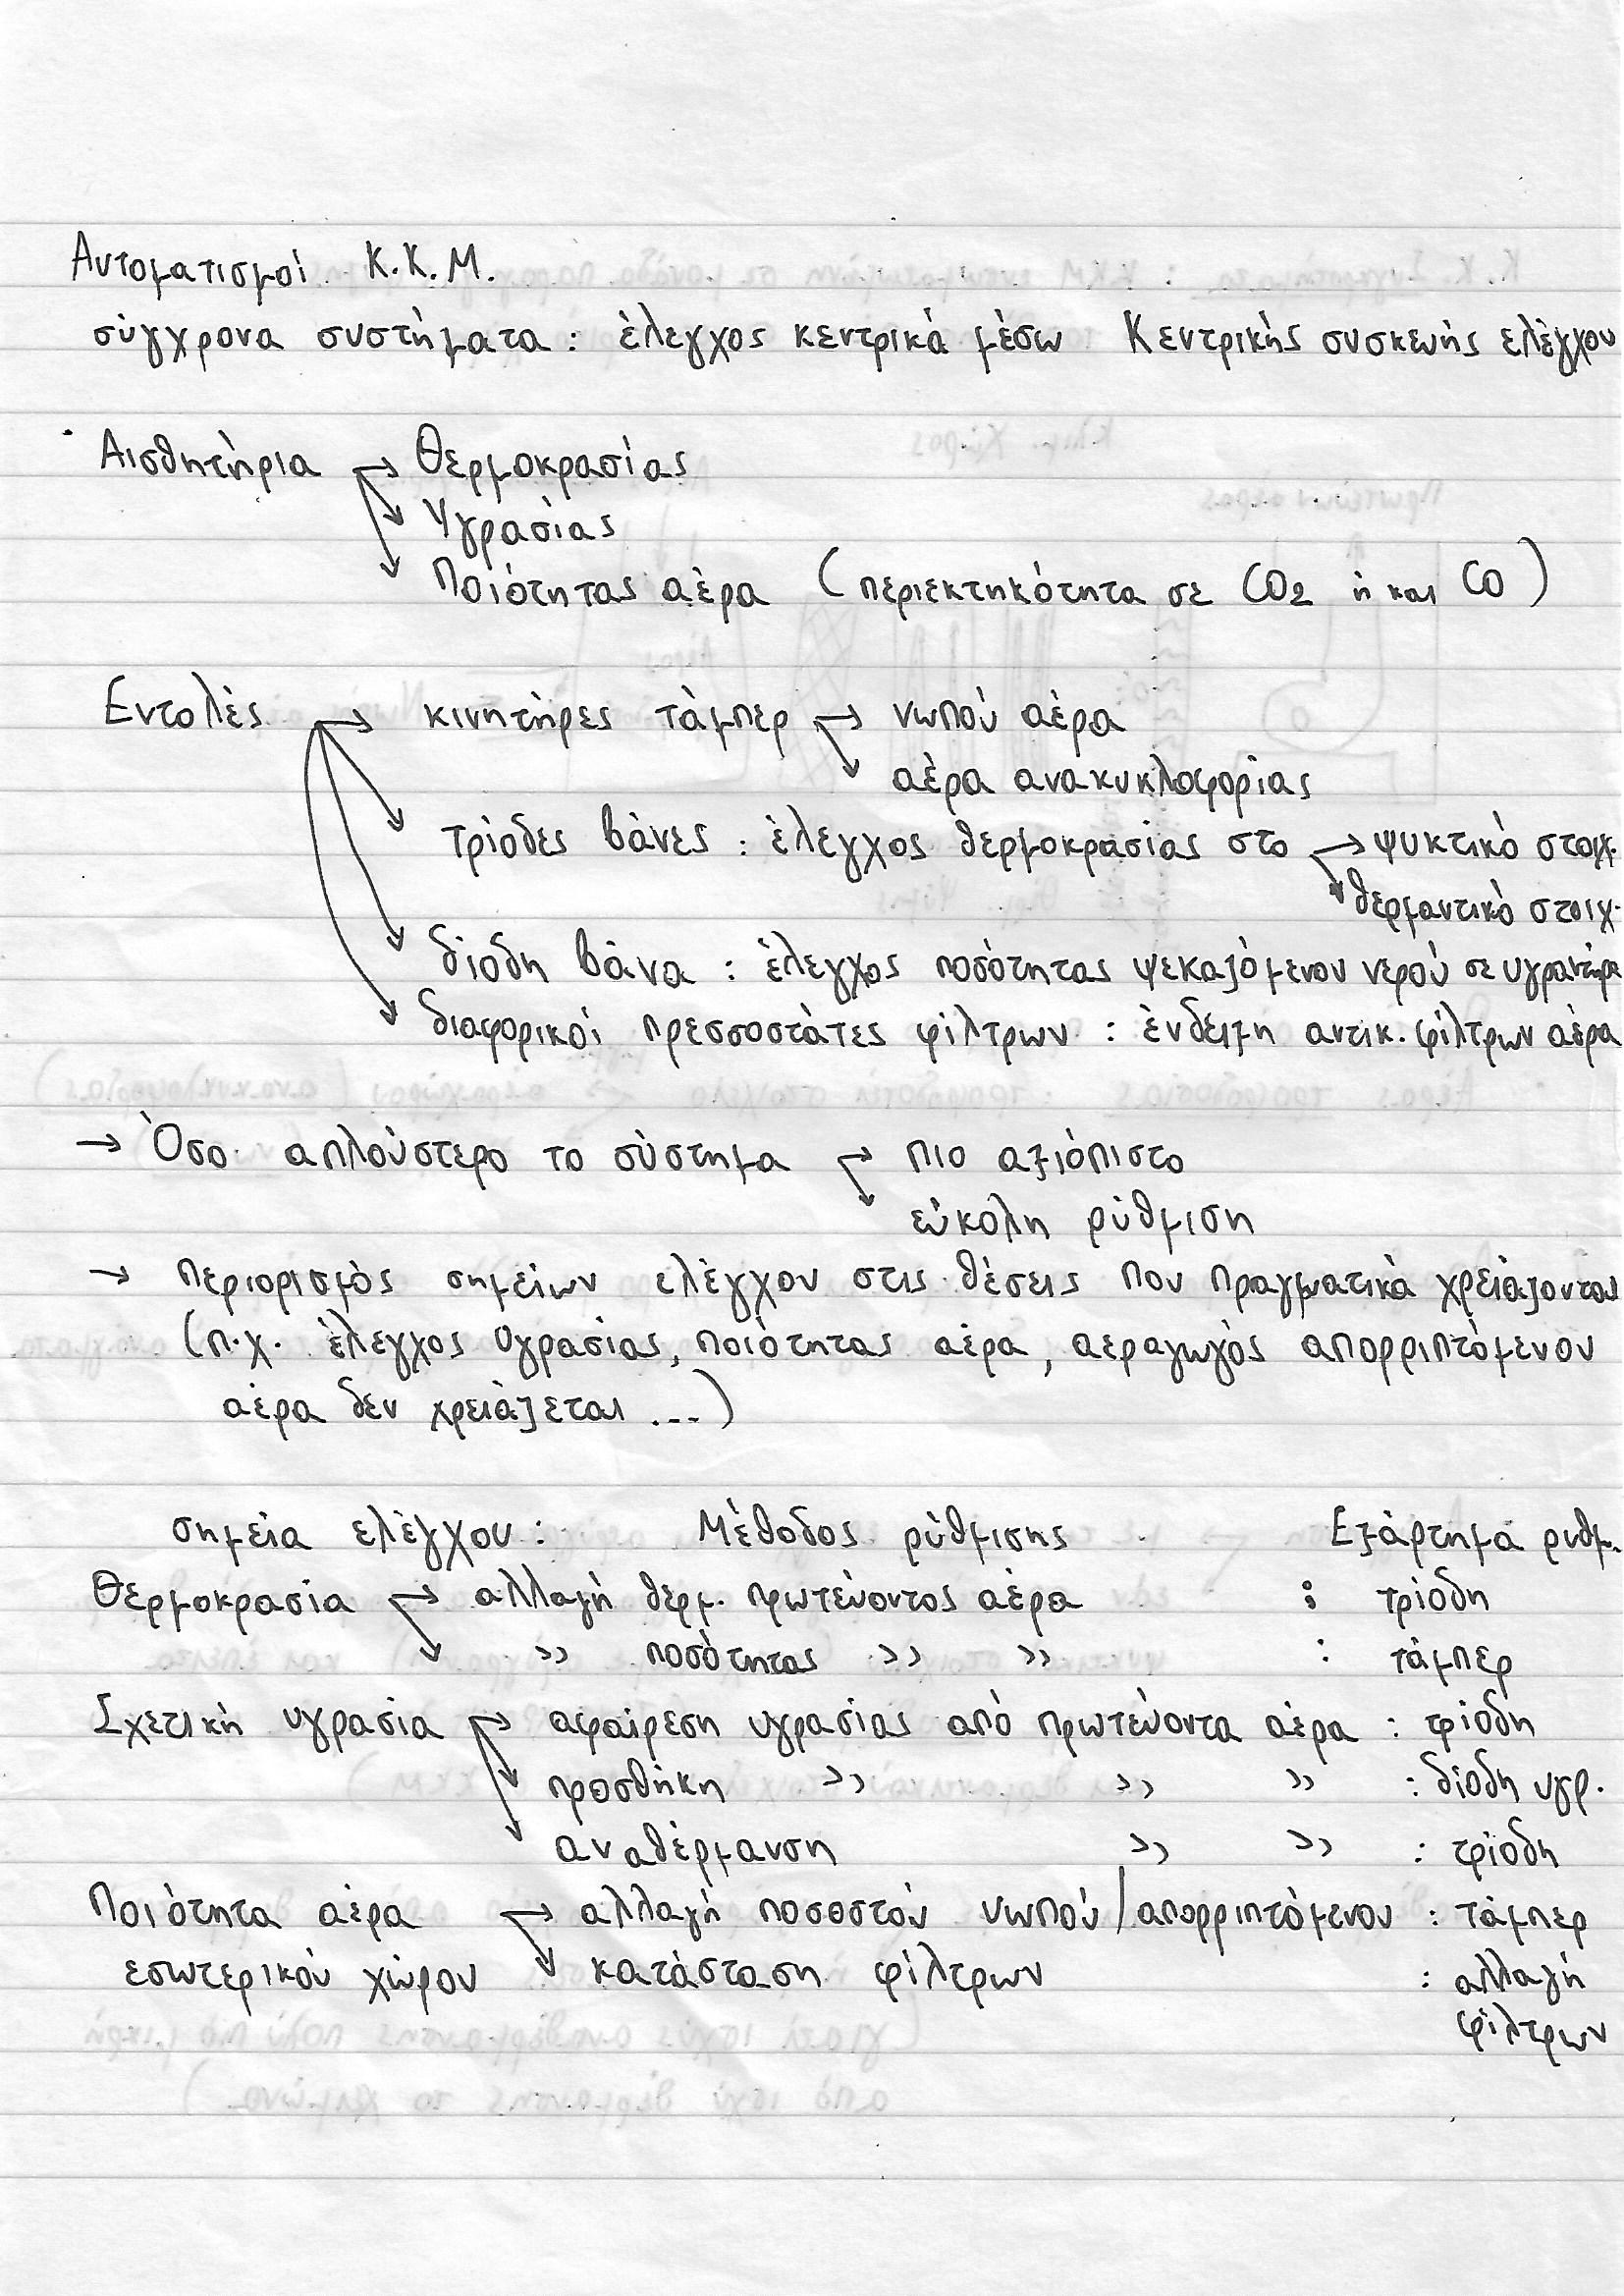 Αυτοματισμοί Κ.Κ.Μ.
σύγχρονα συστήματα : έλεγχος κεντρικά μέσω Κεντρικής συσκευής ελέγχου
Αισθητήρια → Θερμοκρασίας
Υγρασίας
Ποιότητας αέρα (περιεκτηκότητα σε CO2 ή και CO)
Εντολές → κινητήρες τάμπερ → νωπού αέρα
αέρα ανακυκλοφορίας
τρίοδες βάνες : έλεγχος θερμοκρασίας στο → ψυκτικό στοιχ.
θερμαντικό στοιχ.
δίοδη βάνα : έλεγχος ποσότητας ψεκαζόμενου νερού σε υγραντήρα
διαφορικοί πρεσσοστάτες φίλτρων : ένδειξη αντικ. φίλτρων αέρα
→ Όσο απλούστερο το σύστημα → πιο αξιόπιστο
εύκολη ρύθμιση
→ Περιορισμός σημείων ελέγχου στις θέσεις που πραγματικά χρειάζονται
(π.χ. έλεγχος υγρασίας, ποιότητας αέρα, αεραγωγός απορριπτόμενου
αέρα δεν χρειάζεται ...)
σημεία ελέγχου : Μέθοδος ρύθμισης Εξάρτημα ρυθμ.
Θερμοκρασία → αλλαγή θερμ. πρωτεύοντος αέρα : τρίοδη
>> ποσότητας >> >> : τάμπερ
Σχετική υγρασία → αφαίρεση υγρασίας από πρωτεύοντα αέρα : τρίοδη
προσθήκη >> >> >> : δίοδη υγρ.
αναθέρμανση >> >> : τρίοδη
Ποιότητα αέρα → αλλαγή ποσοστού νωπού/απορριπτόμενου : τάμπερ
εσωτερικού χώρου κατάσταση φίλτρων : αλλαγή
φίλτρων